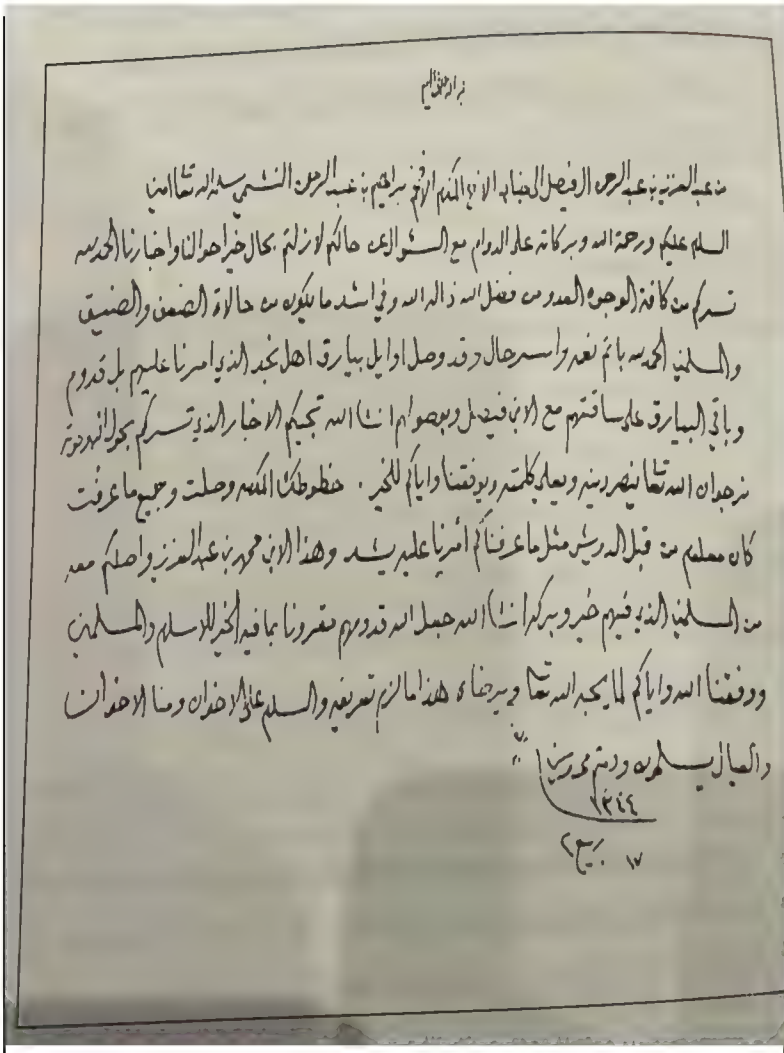 بسم الله الرحمن الرحيم
من عبد العزيز بن عبد الرحمن ال فيصل الى جناب الاخ المكرم الافخم براهيم بن عبد الرحمن النشمي سلمه الله تعا امين
السلام عليكم ورحمة الله وبركاته على الدوام مع السؤال عن حالكم لازلتم بحال خير احوالنا واخبارنا الحمد لله
تسركم من كافة الوجوه العدو من فضل الله ذاله الله وفي اشد ما يكون من حالاة الضعف والضيق
والمسلمين الحمد لله باتم نعمه واسر حال وقد وصل اوايل بيارق اهل نجد الذي امرنا عليهم بل قدوم
وباقي البيارق على ساقتهم مع الابن فيصل وبوصولهم انشا الله تجيكم الاخبار الذي تسركم بحول الله وقوته
نرجوا ان الله تعا ينصر دينه ويعلي كلمته ويوفقنا واياكم للخير . خطوطك المكرمه وصلت وجميع ما عرفت
كان معلوم من قبل الدويش مثل ما عرفناكم أمرنا عليه يشد وهذا الابن محمد بن عبد العزيز واصلكم معه
من المسلمين الذي فيهم خير وبركه انشا الله جعل الله قدومهم مقرونا بما فيه الخير للاسلام والمسلمين
ووفقنا الله واياكم لما يحبه الله تعا ويرضاه هذا ما لزم تعريفه والسلام على الاخوان ومنا الاخوان
والعيال يسلمون ودمتم محروسين
١٣٤٤
١٧ ربيع ٢